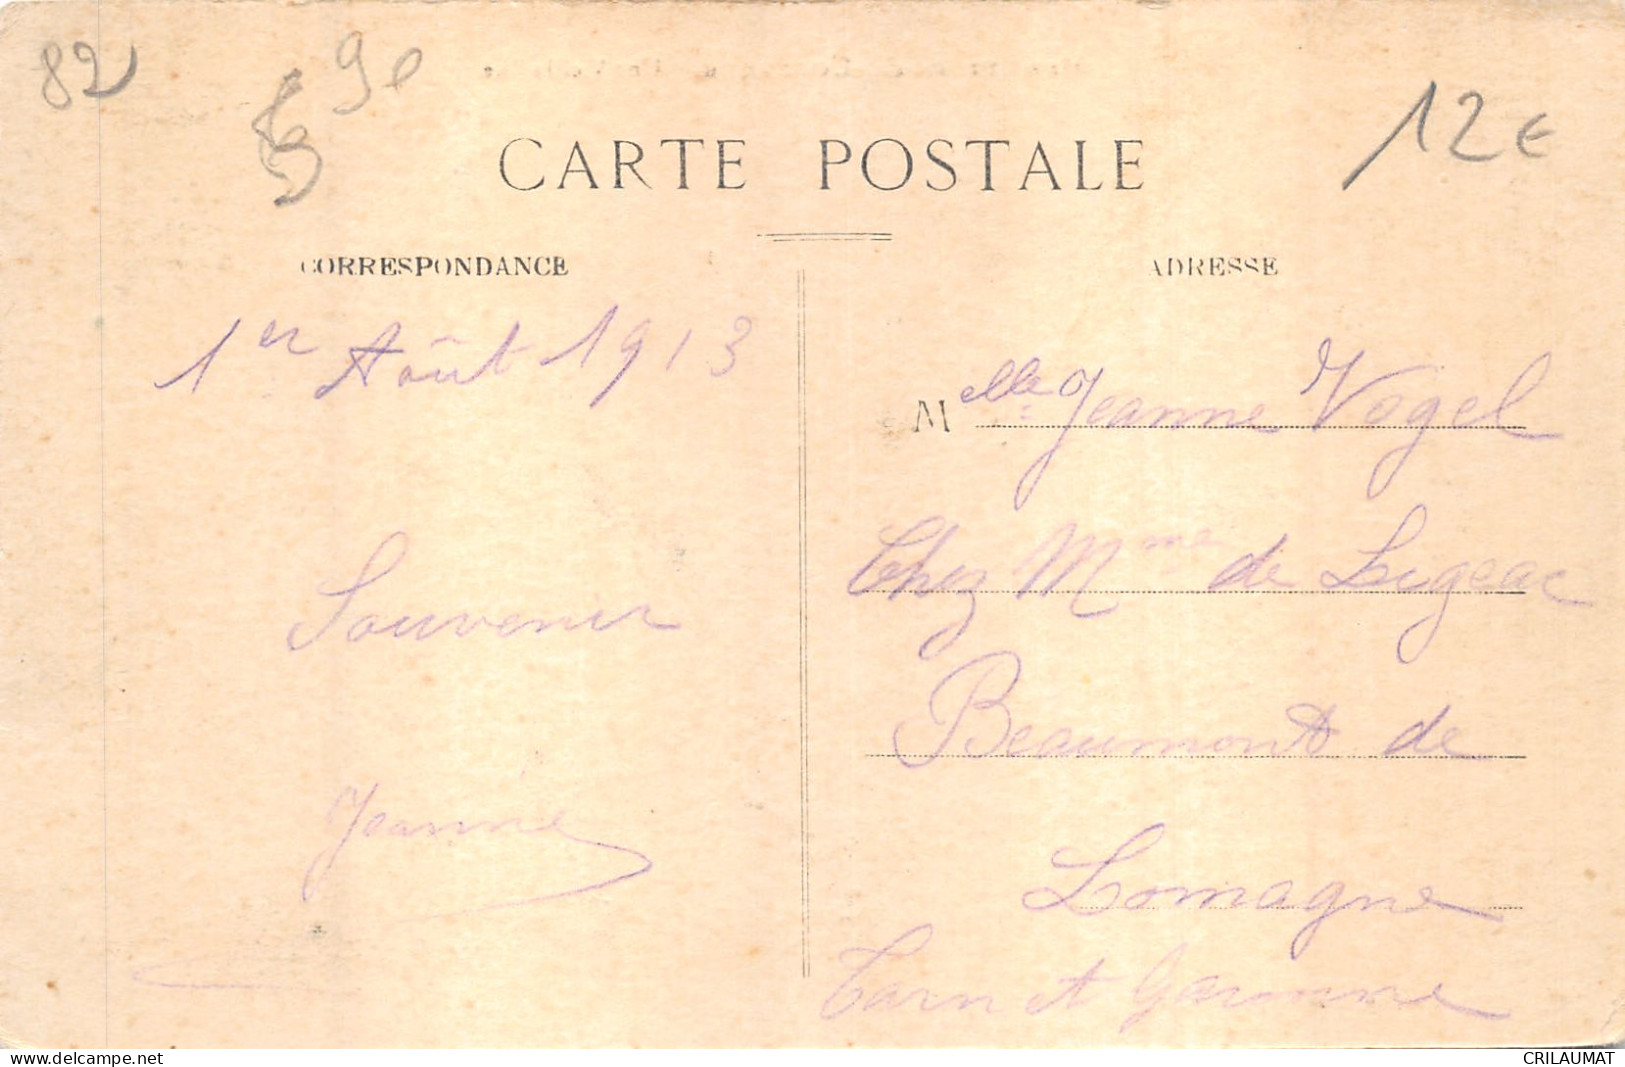 82
9e
12€
CARTE POSTALE
CORRESPONDANCE
1er Août 1913
Souvenir
Jeanne
ADRESSE
Melle Jeanne Vogel
Chez Mme de Lugeac
Beaumont de
Lomagne
Tarn et Garonne
www.delcampe.net
CRILAUMAT